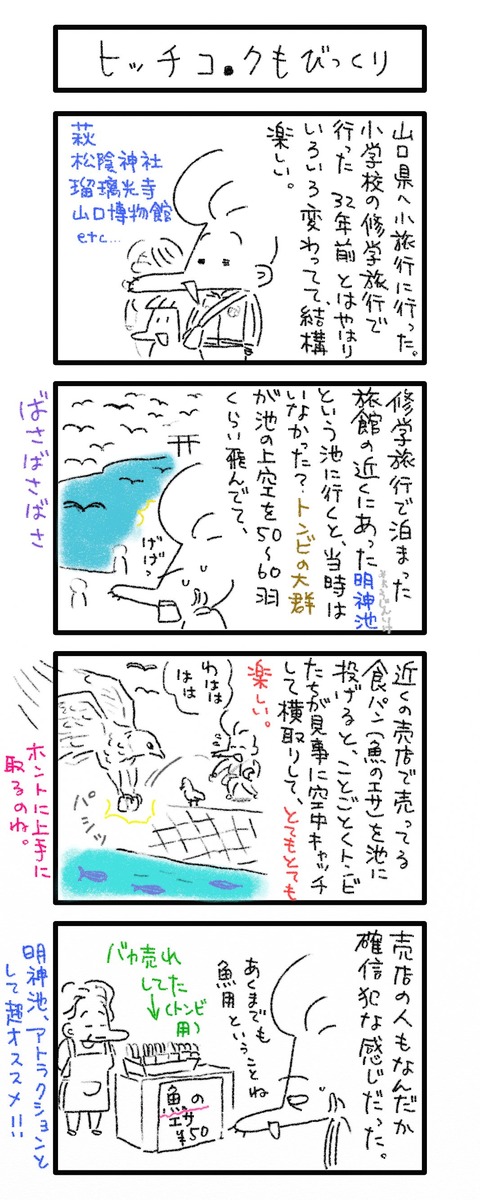 ヒッチコックもびっくり
山口県へ小旅行に行った。
小学校の修学旅行で
行った32年前とはやはり
いろいろ変わってて、結構
楽しい。
萩
松陰神社
瑠璃光寺
山口博物館
etc…
修学旅行で泊まった
旅館の近くにあった明神池
みょうじんいけ
という池に行くと、当時は
いなかった?トンビの大群
が池の上空を50〜60羽
くらい飛んでて、
げげっ
ばさばさばさ
近くの売店で売ってる
食パン(魚のエサ)を池に
投げると、ことごとくトンビ
たちが見事に空中キャッチ
して横取りして、とてもとても
楽しい。
わはは
はは
パシッ
ホントに上手に
取るのね。
売店の人もなんだか
確信犯な感じだった。
あくまでも
魚用ということね
バカ売れ
してた
(トンビ
用)
魚の
エサ
¥50
明神池、アトラクションと
して超オススメ!!